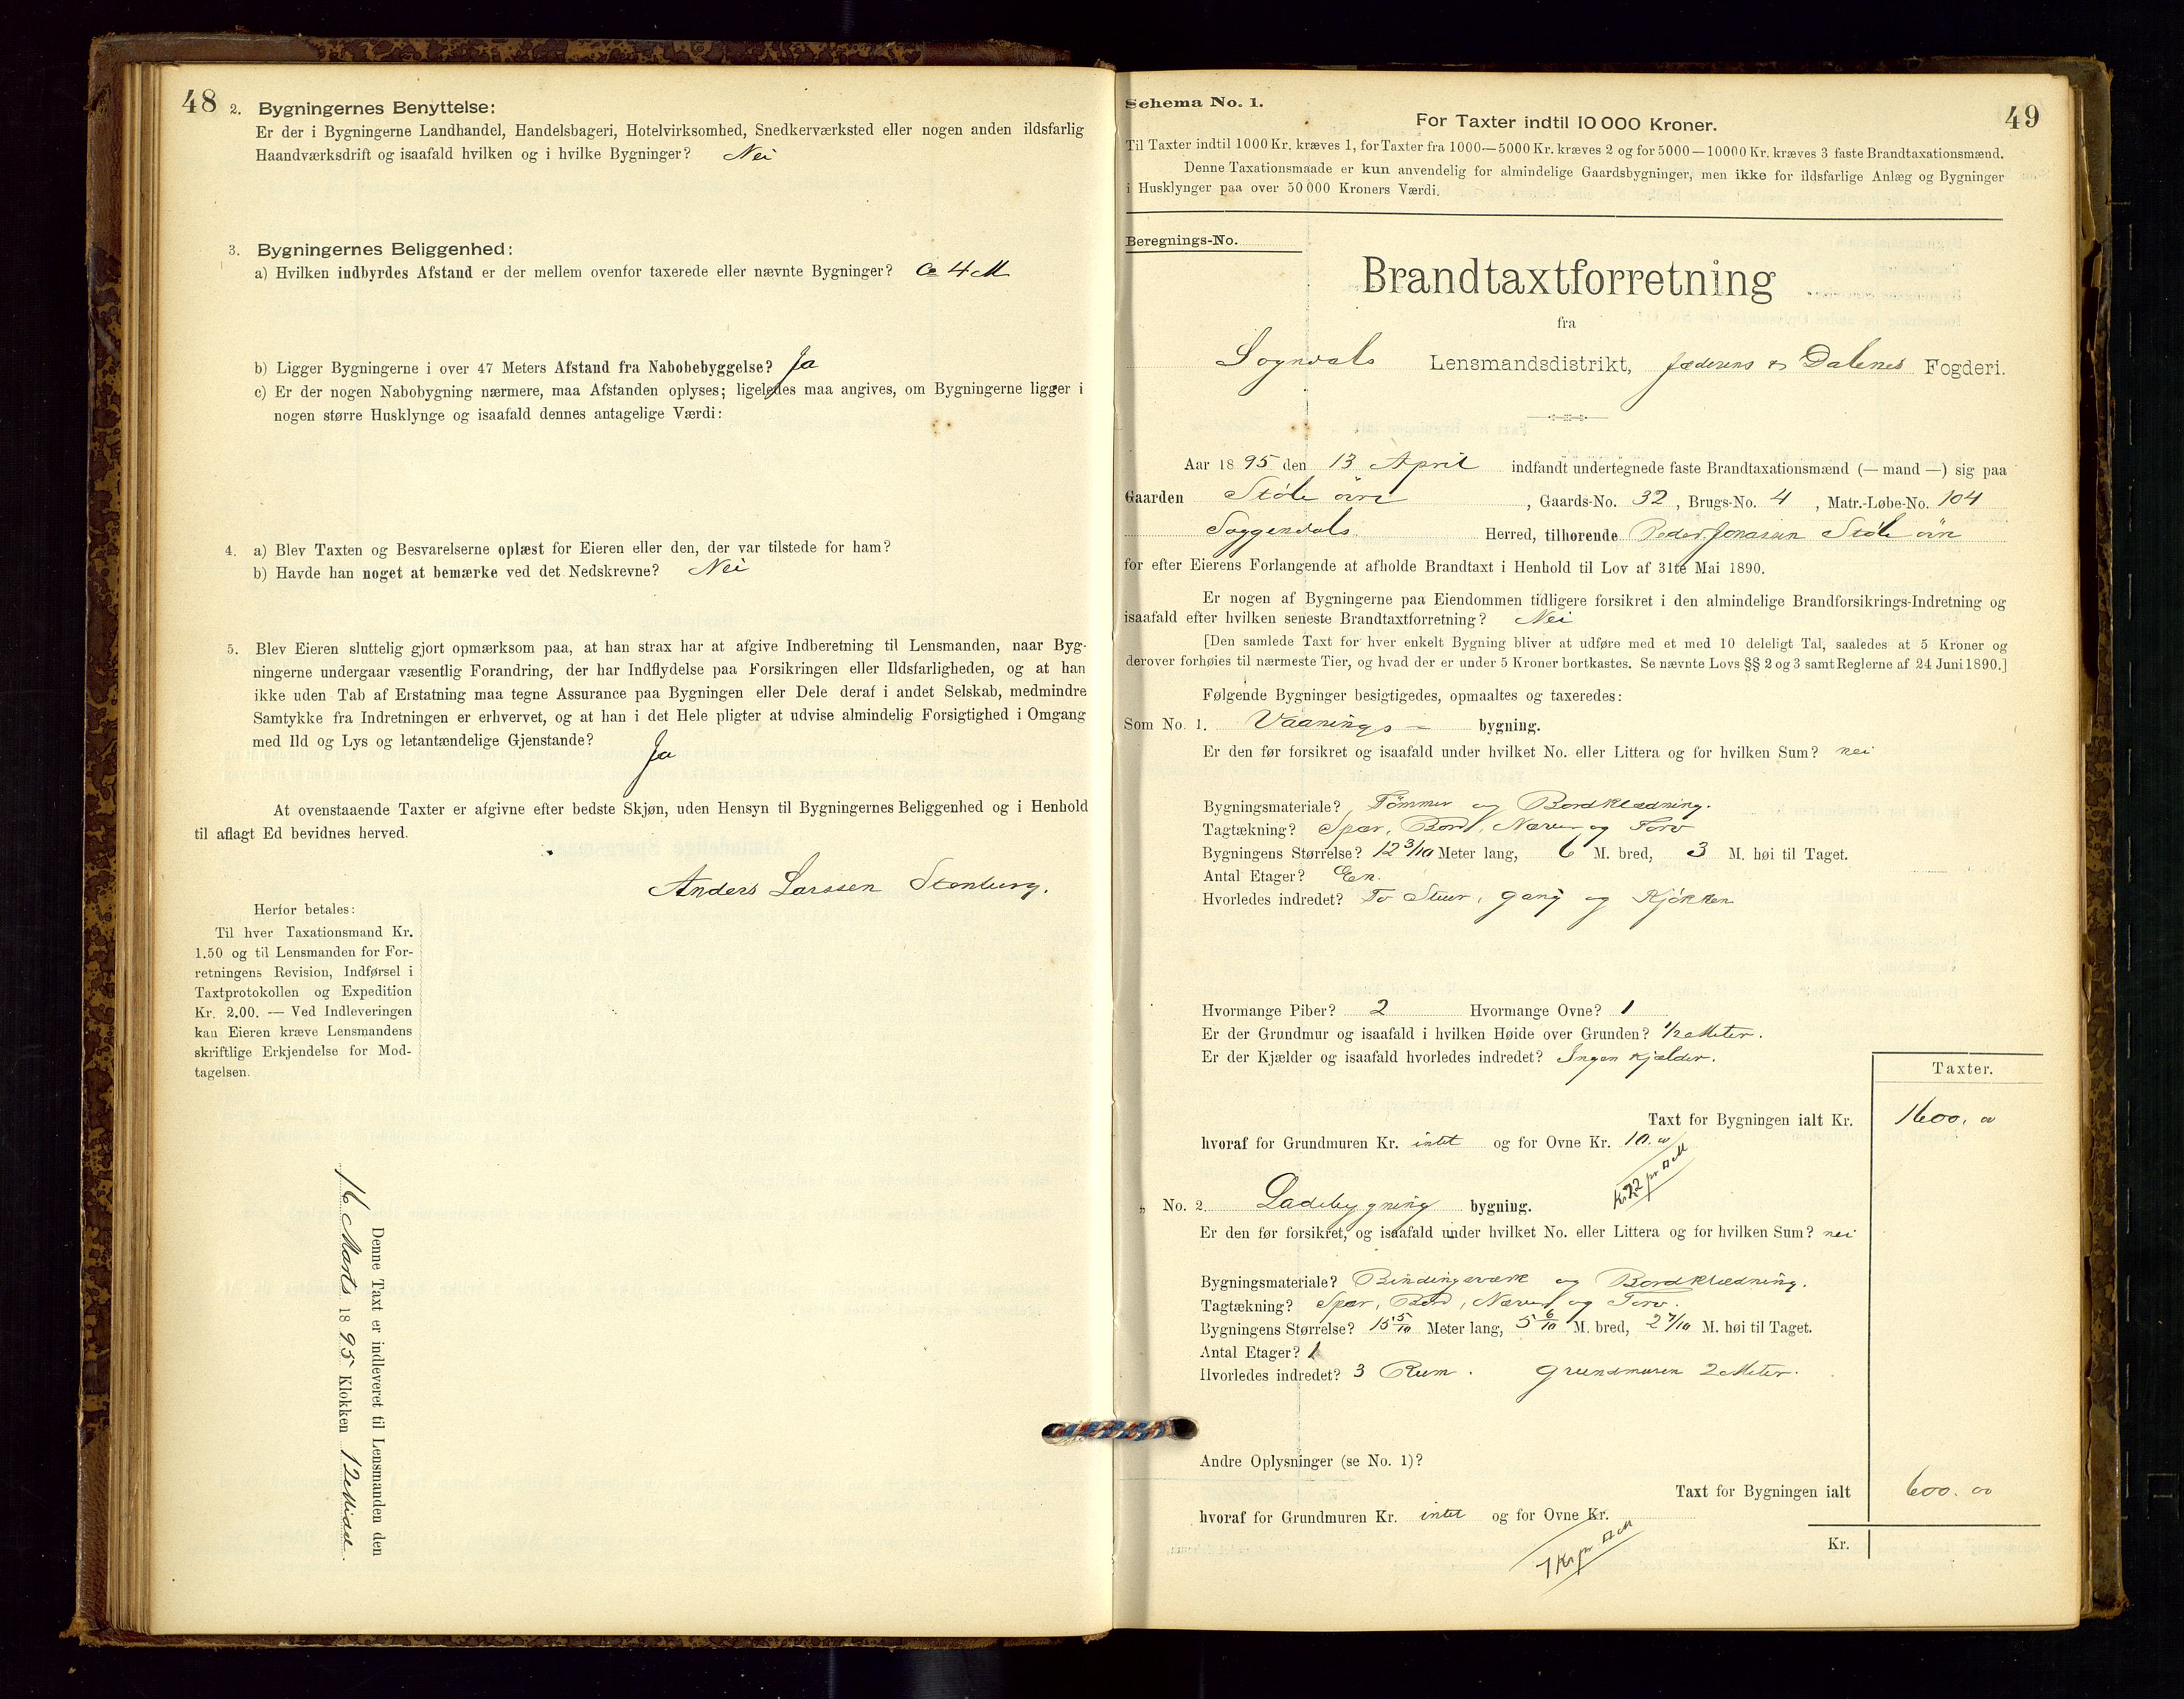 48
2. Bygningernes Benyttelse:
Er der i Bygningerne Landhandel, Handelsbageri, Hotelvirksomhed, Snedkerværksted eller nogen anden ildsfarlig
Haandværksdrift og isaafald hvilken og i hvilke Bygninger? Nei
3. Bygningernes Beliggenhed:
a) Hvilken indbyrdes Afstand er der mellem ovenfor taxerede eller nævnte Bygninger? Ca 4 M
b) Ligger Bygningerne i over 47 Meters Afstand fra Nabobebyggelse? Ja
c) Er der nogen Nabobygning nærmere, maa Afstanden oplyses; ligeledes maa angives, om Bygningerne ligger i
nogen større Husklynge og isaafald dennes antagelige Værdi:
4. a) Blev Taxten og Besvarelserne oplæst for Eieren eller den, der var tilstede for ham?
b) Havde han noget at bemærke ved det Nedskrevne? Nei
5. Blev Eieren sluttelig gjort opmærksom paa, at han strax har at afgive Indberetning til Lensmanden, naar Byg-
ningerne undergaar væsentlig Forandring, der har Indflydelse paa Forsikringen eller Ildsfarligheden, og at han
ikke uden Tab af Erstatning maa tegne Assurance paa Bygningen eller Dele deraf i andet Selskab, medmindre
Samtykke fra Indretningen er erhvervet, og at han i det Hele pligter at udvise almindelig Forsigtighed i Omgang
med Ild og Lys og letantændelige Gjenstande? Ja
At ovenstaaende Taxter er afgivne efter bedste Skjøn, uden Hensyn til Bygningernes Beliggenhed og i Henhold
til aflagt Ed bevidnes herved.
Anders Larssen Stenberg.
Herfor betales:
Til hver Taxationsmand Kr.
1.50 og til Lensmanden for For-
retningens Revision, Indførsel i
Taxtprotokollen og Expedition
Kr. 2.00. — Ved Indleveringen
kan Eieren kræve Lensmandens
skriftlige Erkjendelse for Mod-
tagelsen.
Denne Taxt er indleveret til Lensmanden den
16 Marts 1895 Klokken 12 Midd.
49
Schema No. 1.
For Taxter indtil 10 000 Kroner.
Til Taxter indtil 1000 Kr. kræves 1, for Taxter fra 1000—5000 Kr. kræves 2 og for 5000—10000 Kr. kræves 3 faste Brandtaxationsmænd.
Denne Taxationsmaade er kun anvendelig for almindelige Gaardsbygninger, men ikke for ildsfarlige Anlæg og Bygninger
i Husklynger paa over 50 000 Kroners Værdi.
Beregnings-No.
Brandtaxtforretning
fra
Sogndals Lensmandsdistrikt, Jæderens & Dalenes Fogderi.
Aar 1895 den 13 April indfandt undertegnede faste Brandtaxationsmænd (— mand —) sig paa
Gaarden Støle øvre, Gaards-No. 32, Brugs-No. 4, Matr.-Løbe-No. 104
Soggendals Herred, tilhørende Peder Jonasen Støle øvr
for efter Eierens Forlangende at afholde Brandtaxt i Henhold til Lov af 31te Mai 1890.
Er nogen af Bygningerne paa Eiendommen tidligere forsikret i den almindelige Brandforsikrings-Indretning og
isaafald efter hvilken seneste Brandtaxtforretning? Nei
[Den samlede Taxt for hver enkelt Bygning bliver at udføre med et med 10 deleligt Tal, saaledes at 5 Kroner og
derover forhøies til nærmeste Tier, og hvad der er under 5 Kroner bortkastes. Se nævnte Lovs §§ 2 og 3 samt Reglerne af 24 Juni 1890.]
Følgende Bygninger besigtigedes, opmaaltes og taxeredes:
Som No. 1. Vaanings- bygning.
Er den før forsikret og isaafald under hvilket No. eller Littera og for hvilken Sum? nei
Bygningsmateriale? Tømmer og Bordklædning.
Tagtækning? Spær, Bord, Næver og Torv
Bygningens Størrelse? 12 3/10 Meter lang, 6 M. bred, 3 M. høi til Taget.
Antal Etager? Een.
Hvorledes indredet? To Stuer, gang og Kjøkken
Hvormange Piber? 2 Hvormange Ovne? 1
Er der Grundmur og isaafald i hvilken Høide over Grunden? 1/2 Meter.
Er der Kjælder og isaafald hvorledes indredet? Ingen kjælder.
Taxter.
Taxt for Bygningen ialt Kr. 1600. 00
hvoraf for Grundmuren Kr. intet og for Ovne Kr. 10.00
Kr 22 pr □ M
„ No. 2. Ladebygning bygning.
Er den før forsikret, og isaafald under hvilket No. eller Littera og for hvilken Sum? nei
Bygningsmateriale? Bindingsværk og Bordklædning.
Tagtækning? Spær, Bord, Næver og Torv.
Bygningens Størrelse? 15 5/10 Meter lang, 5 6/10 M. bred, 2 7/10 M. høi til Taget.
Antal Etager? 1
Hvorledes indredet? 3 Rum. Grundmuren 2 Meter.
Andre Oplysninger (se No. 1)?
Taxt for Bygningen ialt 600. 00
hvoraf for Grundmuren Kr. intet og for Ovne Kr.
7 Kr pr □ M
Kr.